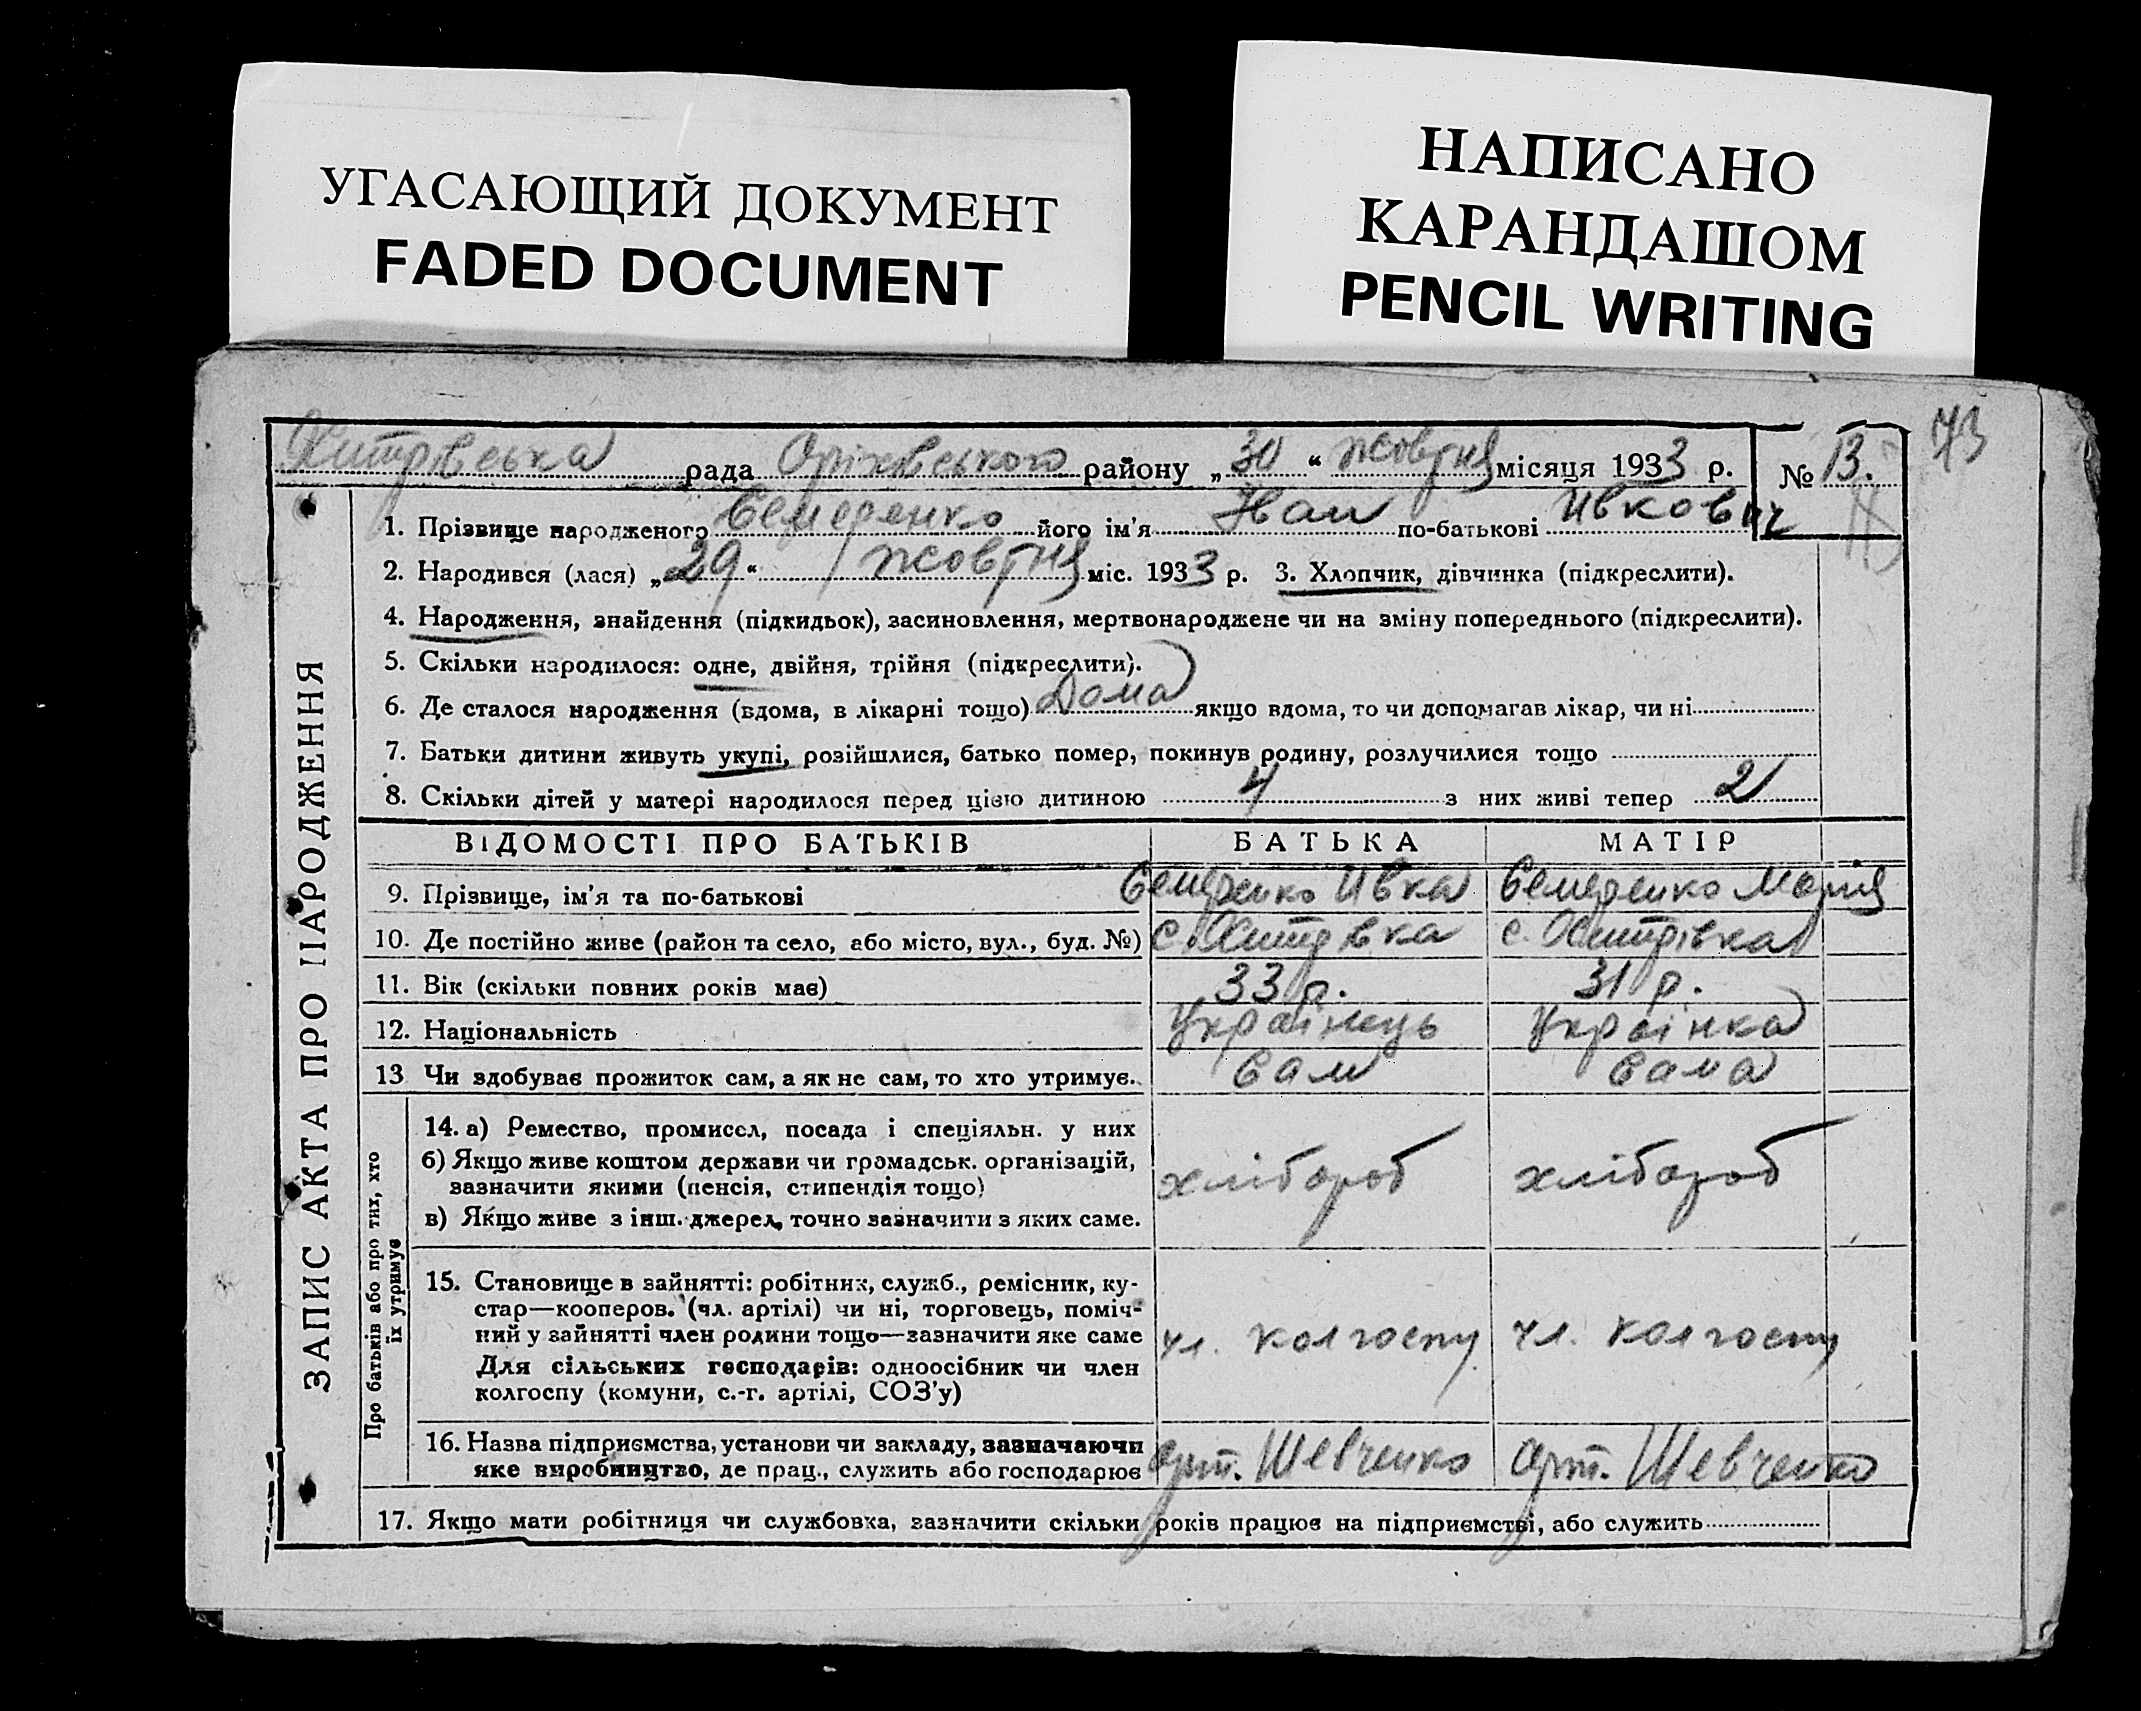 УГАСАЮЩИЙ ДОКУМЕНТ
FADED DOCUMENT
НАПИСАНО
КАРАНДАШОМ
PENCIL WRITING
73
Хитрівська рада Оріхівського району „30“ жовтня місяця 1933 р. № 13.
ЗАПИС АКТА ПРО НАРОДЖЕННЯ
1. Прізвище народженого Семеренко його ім'я Иван по-батькові Ивкович
2. Народився (лася) „29“ жовтня міс. 1933 р. 3. Хлопчик, дівчинка (підкреслити).
4. Народження, знайдення (підкидьок), засиновлення, мертвонароджене чи на зміну попереднього (підкреслити).
5. Скільки народилося: одне, двійня, трійня (підкреслити).
6. Де сталося народження (вдома, в лікарні тощо) Дома якщо вдома, то чи допомагав лікар, чи ні
7. Батьки дитини живуть укупі, розійшлися, батько помер, покинув родину, розлучилися тощо
8. Скільки дітей у матері народилося перед цією дитиною 4 з них живі тепер 2
ВІДОМОСТІ ПРО БАТЬКІВ БАТЬКА МАТІР
9. Прізвище, ім'я та по-батькові Семеренко Ивка Семеренко Марія
10. Де постійно живе (район та село, або місто, вул., буд. №) с. Хитрівка с. Хитрівка
11. Вік (скільки повних років має) 33 р. 31 р.
12. Національність Українець Українка
13 Чи здобуває прожиток сам, а як не сам, то хто утримує. Сам Сама
Про батьків або про тих, хто
їх утримує
14. а) Ремество, промисел, посада і спеціяльн. у них
б) Якщо живе коштом держави чи громадськ. організацій,
зазначити якими (пенсія, стипендія тощо) хлібороб хлібороб
в) Якщо живе з інш. джерел, точно зазначити з яких саме.
15. Становище в зайнятті: робітник, служб., ремісник, ку-
стар—кооперов. (чл. артілі) чи ні, торговець, поміч-
ний у зайнятті член родини тощо—зазначити яке саме чл. колгоспу чл. колгоспу
Для сільських господарів: одноосібник чи член
колгоспу (комуни, с.-г. артілі, СОЗ'у)
16. Назва підприємства, установи чи закладу, зазначаючи
яке виробництво, де прац., служить або господарює Арт. Шевченко Арт. Шевченко
17. Якщо мати робітниця чи службовка, зазначити скільки років працює на підприємстві, або служить